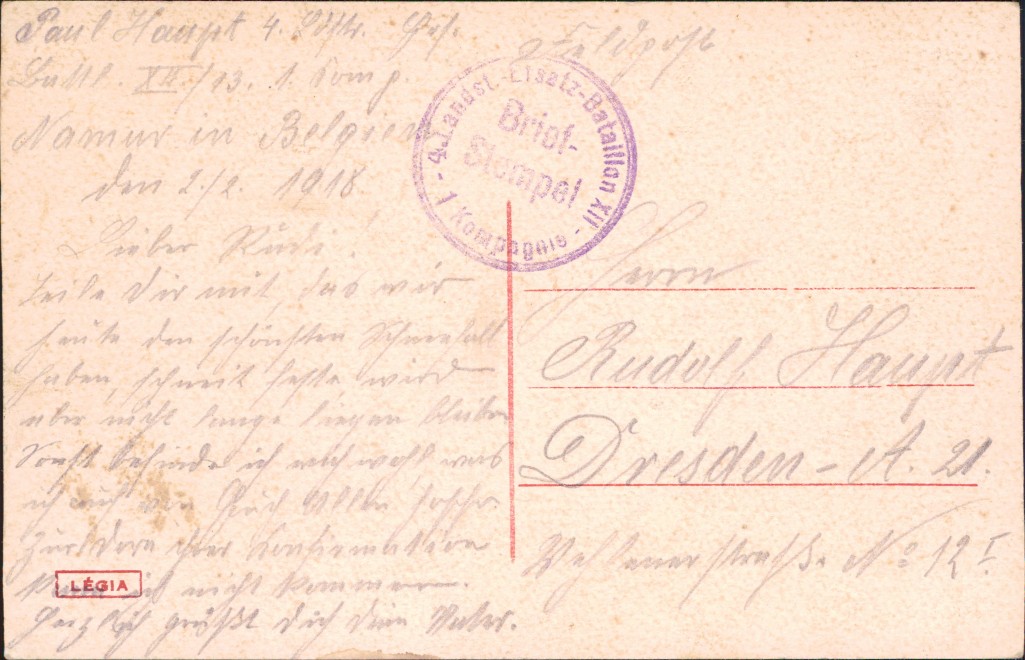 Paul Haupt 4. Ldstr. Ers.
Battl. XII./13. 1. Komp.
Namur in Belgien
den 2./2. 1918.
Lieber Rudi.
Teile Dir mit, das wir
heute den schönsten Schneefall
haben, schneit feste wird
aber nicht lange liegen bleiben
Sonst befinde ich mich wohl was
ich auch von Euch Allen hoffe.
Zur Confirmation
kann ich nicht kommen.
Herzlich grüßt dich dein Vater.
Feldpost
4. Landst.-Ersatz-Bataillon XII
Brief-
Stempel
1 Kompagnie
Herrn
Rudolf Haupt
Dresden-A. 21.
Wehlenerstraße No 12 I.
LÉGIA